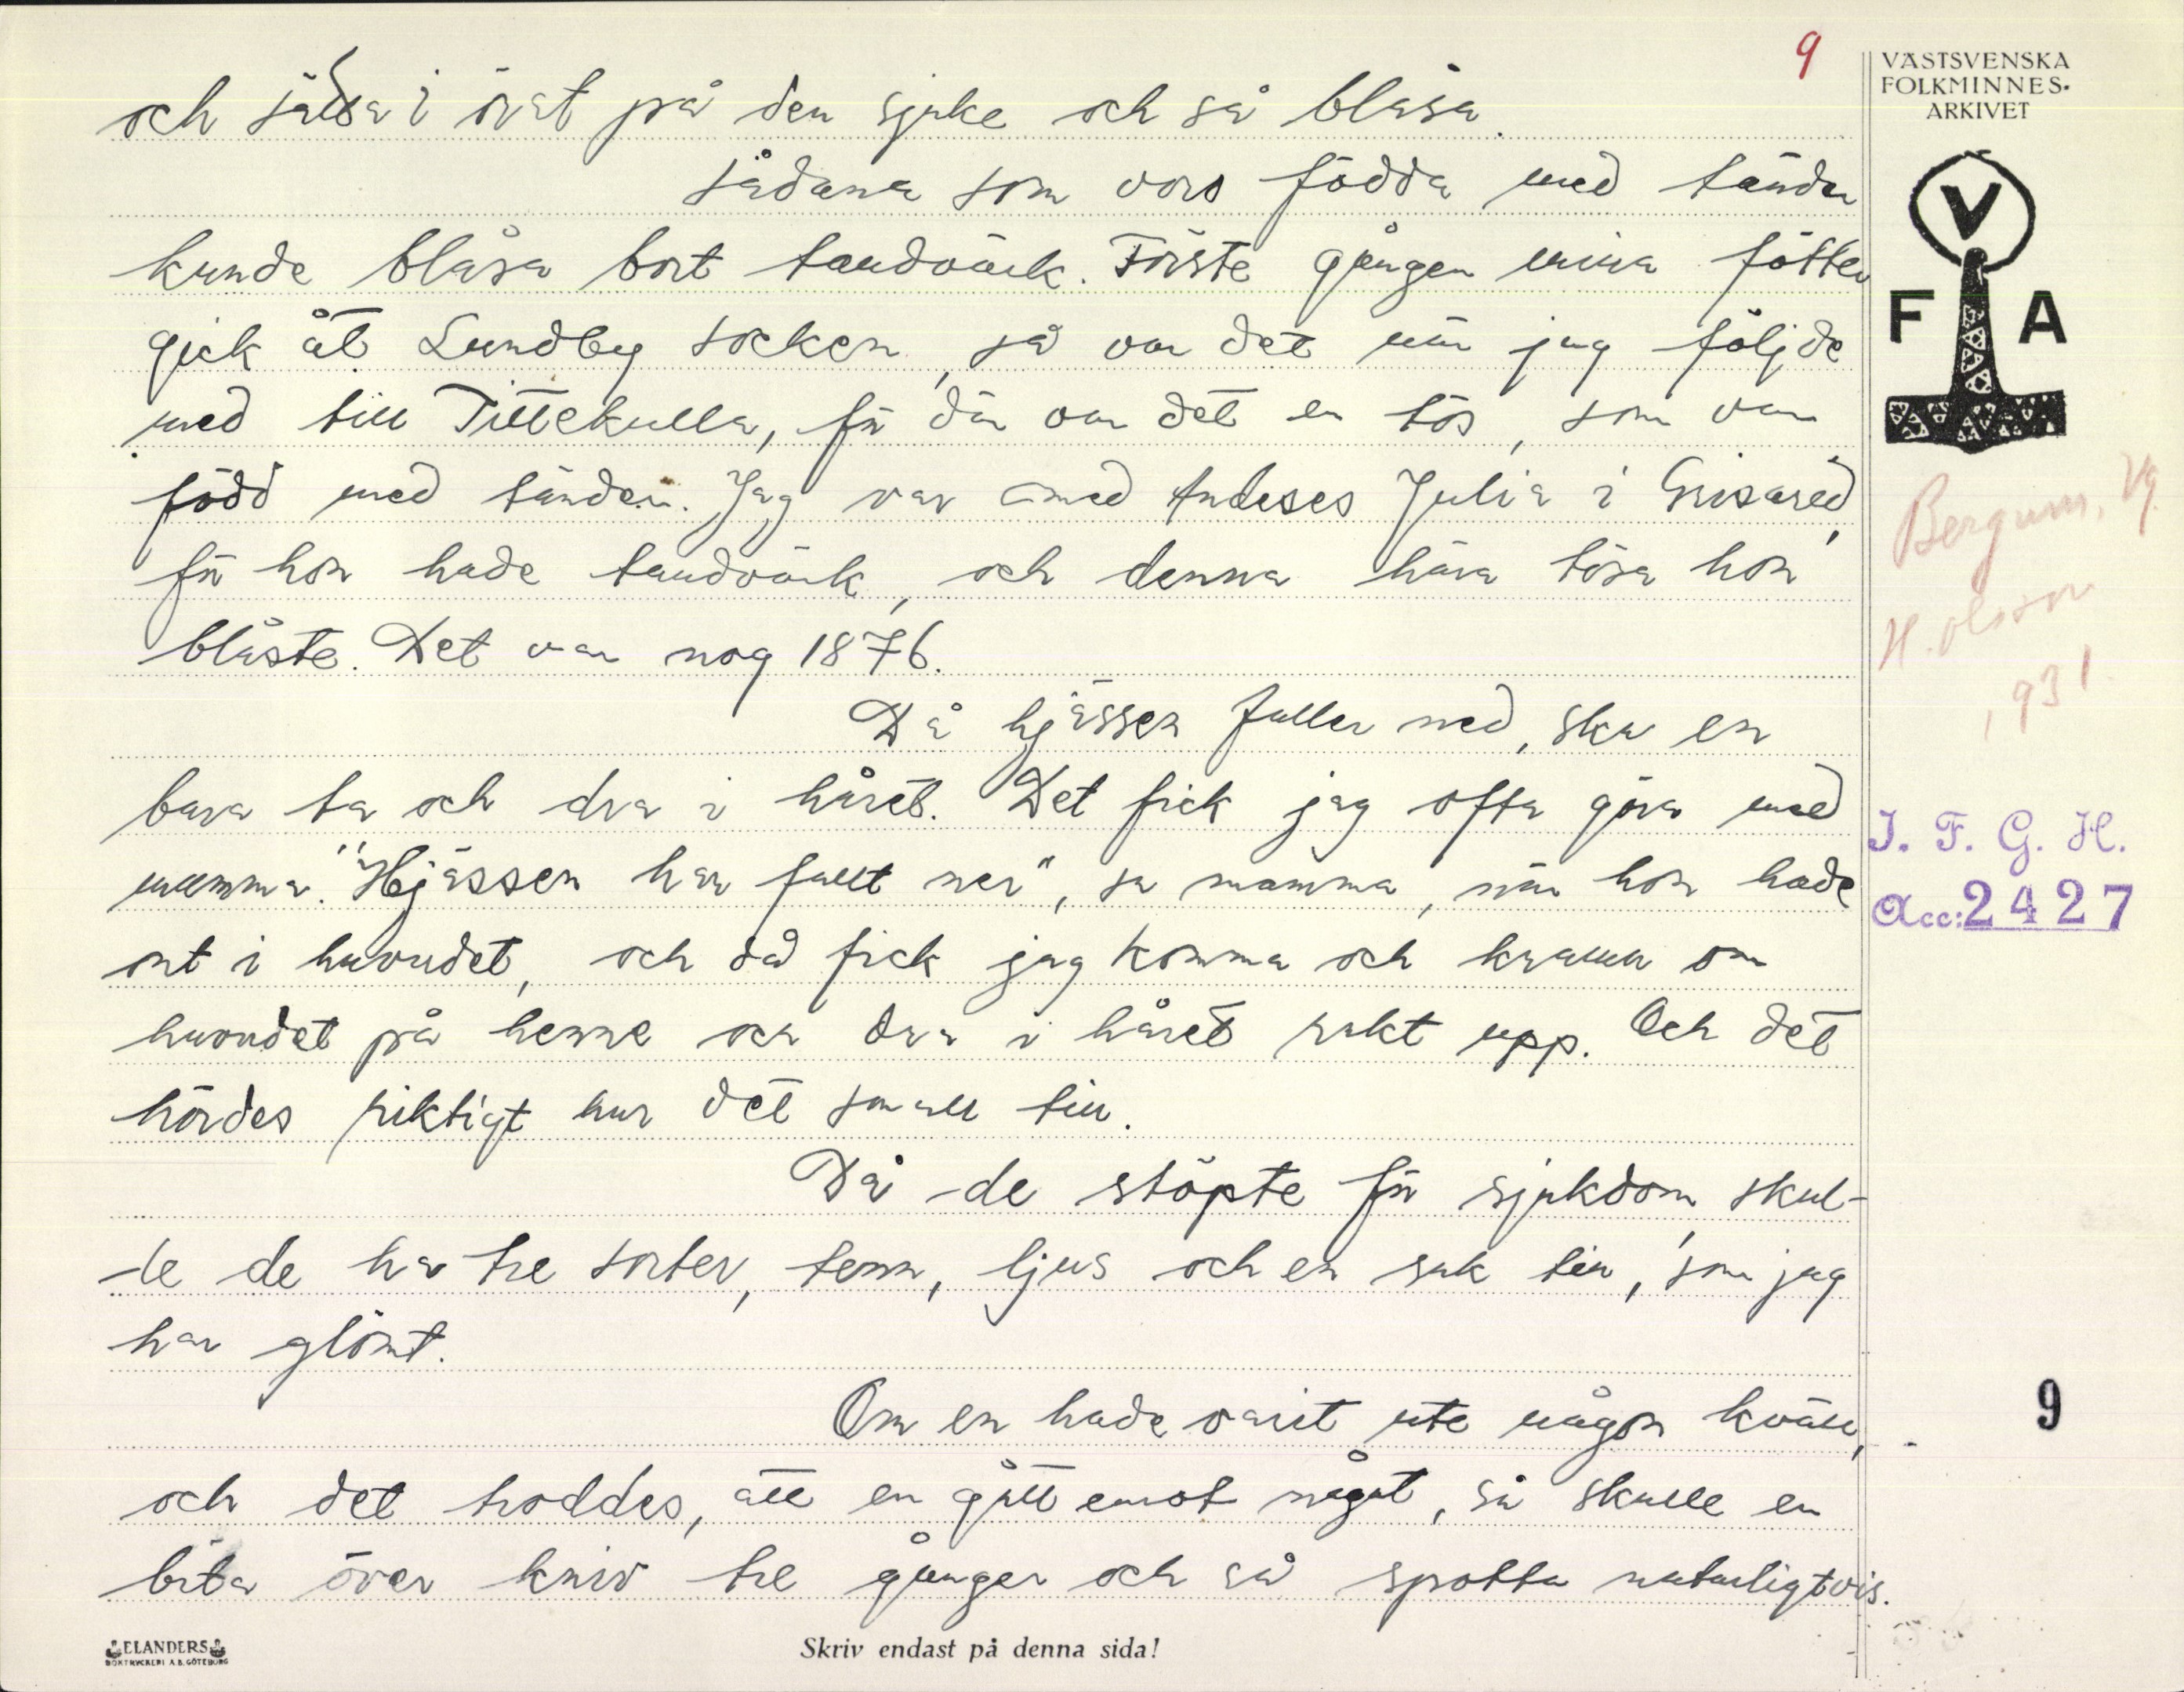 9
och sätta i örat på den sjuke och så blåsa.
sådana som vors födda med tänder
kunde blåsa bort tandvärk. Förste gången mina fötter
gick åt Lundby socken, så var det när jag följde
med till Tittekulla, för där var det en tös, som var
född med tänder. Jag var med Andeses Julia i Grisared,
för hon hade tandvärk, och denna hära tösa hon
blåste. Det var nog 1876.
Då hjässen faller ned, ska en
bara ta och dra i håret. Det fick jag ofta göra med
mamma. "Hjässen har fallt ner", sa mamma, när hon hade
ont i huvudet, och då fick jag komma och krama om
huvudet på henne och dra i håret rakt upp. Och det
hördes riktigt hur det small till.
Då de stöpte för sjukdom, skul-
le de ha tre sorter, tenn, ljus och en sak till, som jag
har glömt.
Om en hade varit ute någon kväll,
och det troddes, att en gått emot något, så skulle en
bita över kniv tre gånger och så spotta naturligtvis.
VÄSTSVENSKA
FOLKMINNES-
ARKIVET
V
F A
Bergum, Vg.
H. Olsson
1931.
I. F. G. H.
Acc: 2427
9
ELANDERS
BOKTRYCKERI A.B. GÖTEBORG
Skriv endast på denna sida!